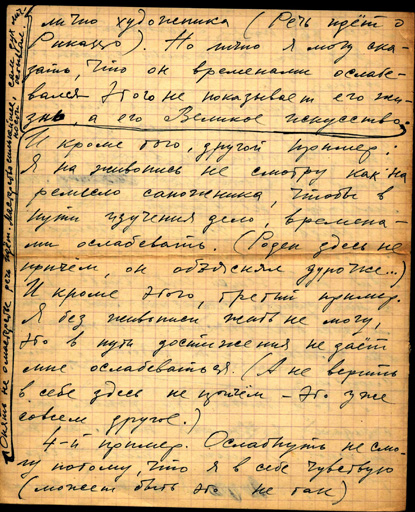 лично художника (Речь идёт о
Пикассо). Но лично я могу ска-
зать, что он временами ослабе-
вался этого не показывает его жи-
знь, а его Великое искусство.
И кроме того, другой пример:
Я на живопись не смотрю как на
ремесло сапожника, чтобы в
пути изучения дело, времена-
ми ослабевать. (Роден здесь не
причём, он объяснял дурочке...)
И кроме этого, третий пример.
Я без живописи жить не могу,
это в пути достижения не даёт
мне ослабеваться. (А не верить
в себе здесь не причём – это уже
совсем другое.)
4-й пример. Ослабнуть не смо-
гу потому, что я в себе чувствую
(может быть это не так)
Опять не о мастерстве речь идёт.